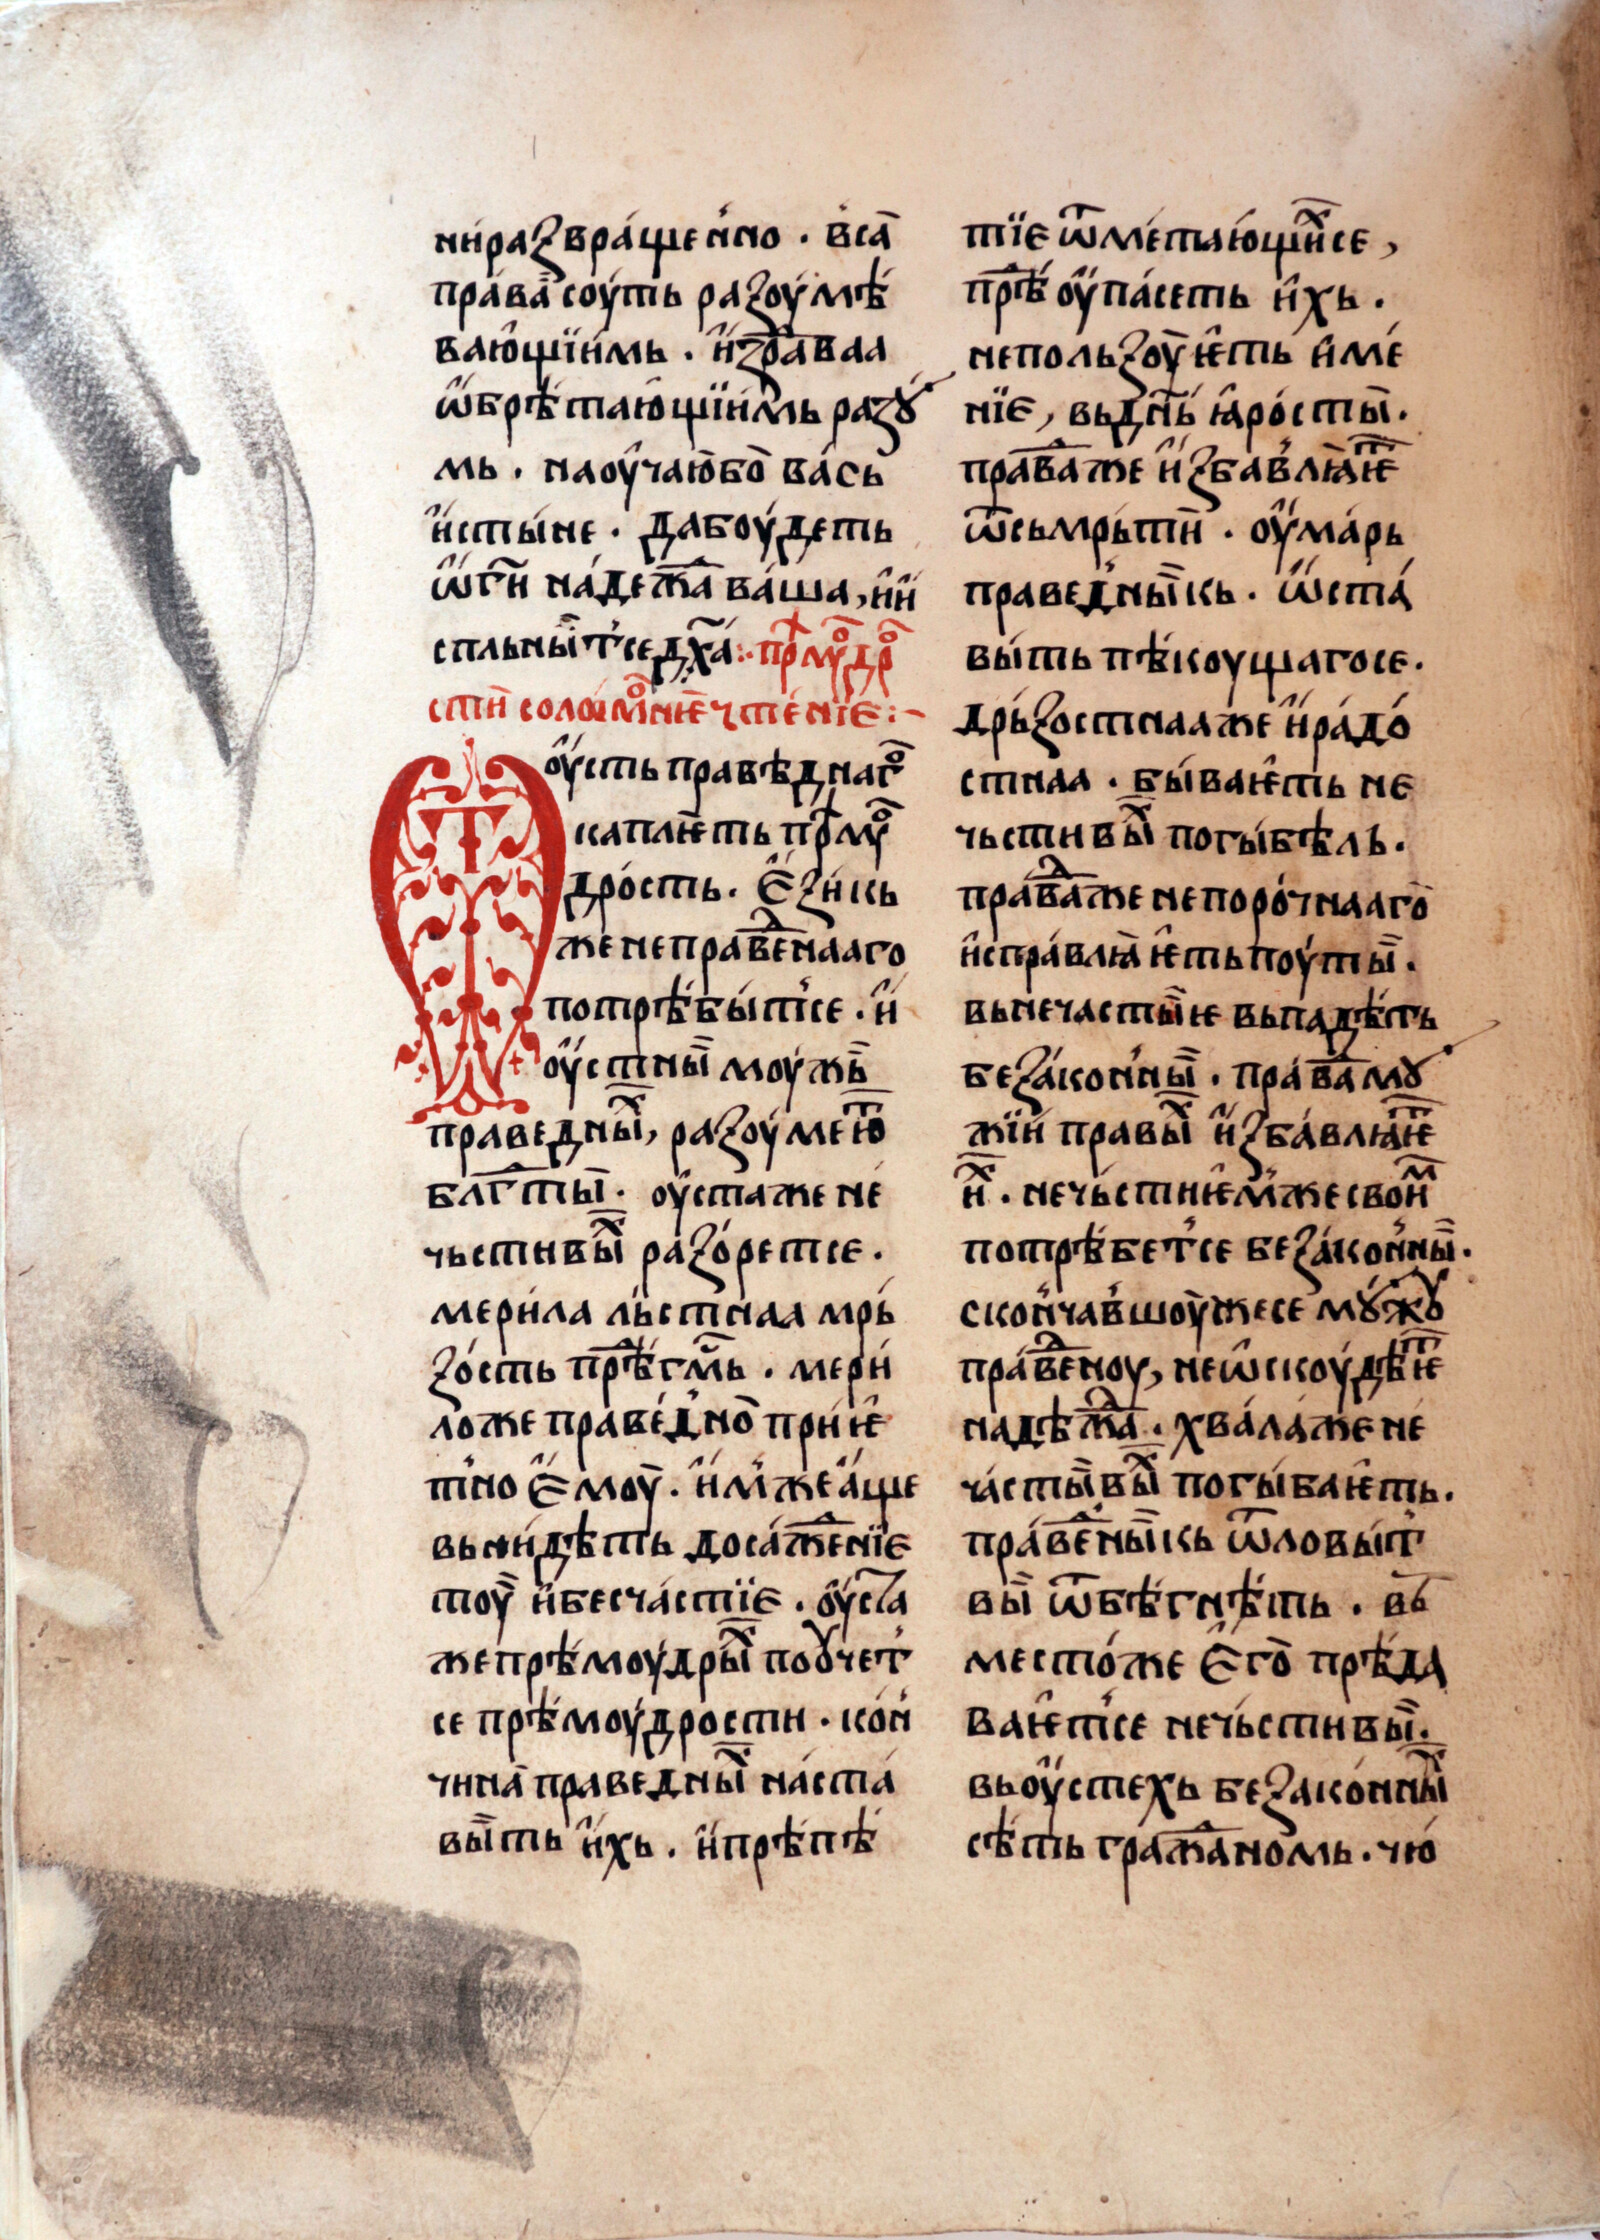 ни́ развра́щен̾но · в̾са̀
пра́ва̀ соу́ть разоу́мѣ́
ваю̑щїи́мь · и҆́здра́ваа
ѡ҆брѣ́таю̑щїи́мь разꙋ́
мь · наоу҆ча́ю бо̀ ва́сь
и҆́стыне · да боу́деть
ѡ҆́ гн҃и на́дежⷣа ва́ша, и҆ и҆
спльны́тсе дх҃а̀ · прⷣмⷣуⷪдрⷪ
сти̑ соло́мⷪнѥ̀ чте́нїе :~
оу҆́сть правѣ́днагⷪ
каплѥ́ть прⷣмуⷣ
дро́сть · є҆зи́кь
же неправⷣенааго
потрѣ́бы́т̾се · и҆́
оу҆́стны̀ моужь̀
пра́ведныⷯ, разоуме́юⷮ
блгⷭ҇ты̀ · оу҆ста́ же не́
чьстнвы́ⷯ разо́ретсе ·
мери́ла льстнаа мрь́
зость прѣⷣ гмь҃ · мери́
ло же праве́д̾но̀ при́ѥ҆
т̾но є҆́моу̀ · и҆мже а҆́ще
вьни́дѣть досажⷣенїе
тоу̀ и҆ бесча́стїе · оу҆́ста
же прѣмоу́дры́ⷯ поꙋчет̾
се прѣмоу́дрости · кон̾
чина̀ пра́ведны́ⷯ на́ста́
вы́ть и҆́хь · и҆ прѣпѣ́
тїе ѿме́таю́щи́ⷯсе ,
прⷣѣ оу҆па́сеть и҆́хь ·
не пользоу́ѥ҆ть и҆ме́
нїе, вь дн҃ь ꙗ҆́рости̑ ·
правⷣа же и҆збав̾лꙗ́ѥⷮ
ѿ сьмрь́ти̑ · оу҆ма́рь
пра́ведны́кь · ѡ҆ста́
вы́ть пѣкоущагосе ·
дрь́зостнаа же и҆ ра́до́
стнаа · бы́ваѥ҆ть не
чьстнвы́ⷯ погы́бѣль ·
правⷣа же непоро́чнааго̀
и҆спра́влꙗѥ҆ть поуты̀ ·
вь нечасты́ѥ вьпаде́ть
беза́кон̾ны̀ · правⷣа мꙋ
жїи́ правы́ⷯ и҆збавлꙗ́ѥⷮ
иⷯ · нечь́стиѥ҆м̾ же свои́ⷨ
потрѣ́бет̾се беза́кон̾ны̀ ·
скон̾чав̾шоу̀ же се мꙋ́жꙋ
правⷣеноу, не ѡскоу́дѣѥⷮ
надѣ́жⷣа · хва́ла́ же не́
ча́сты́вы́ⷯ погы́баѥ҆ть ·
пра́вⷣены́кь ѿ ловы́т̾
вы̀ ѿбѣ́гнѣть · вь
место́ же є҆го̀ прѣ́да
ваѥ҆т̾се нечь́стивы̀ ·
вь оу҆стехь безако́нны́ⷯ
сѣть гра́жⷣаномь · чю́